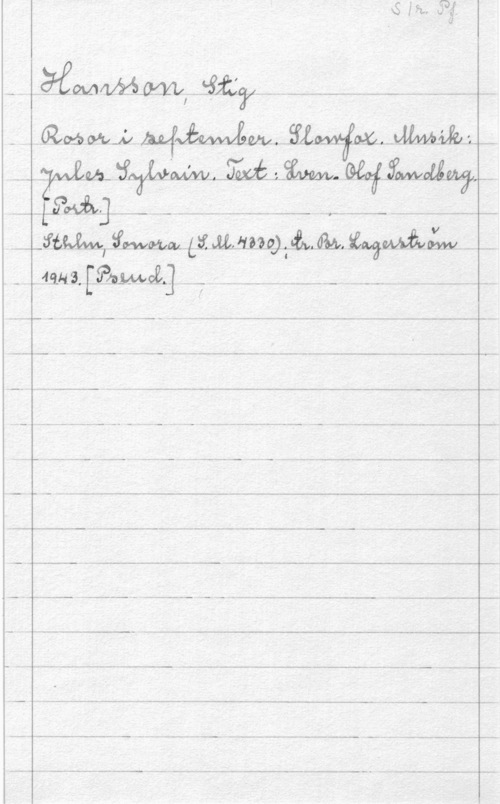 S/r Pf
Hansson, Stig
Rosor i september. Slowfox. Musik:
Jules Sylvain. Text: Sven-Olof Sandberg.
[Portr.]
Sthlm, Sonora (S.M. 4330), tr. Br. Lagerström
1943. [Pseud.]